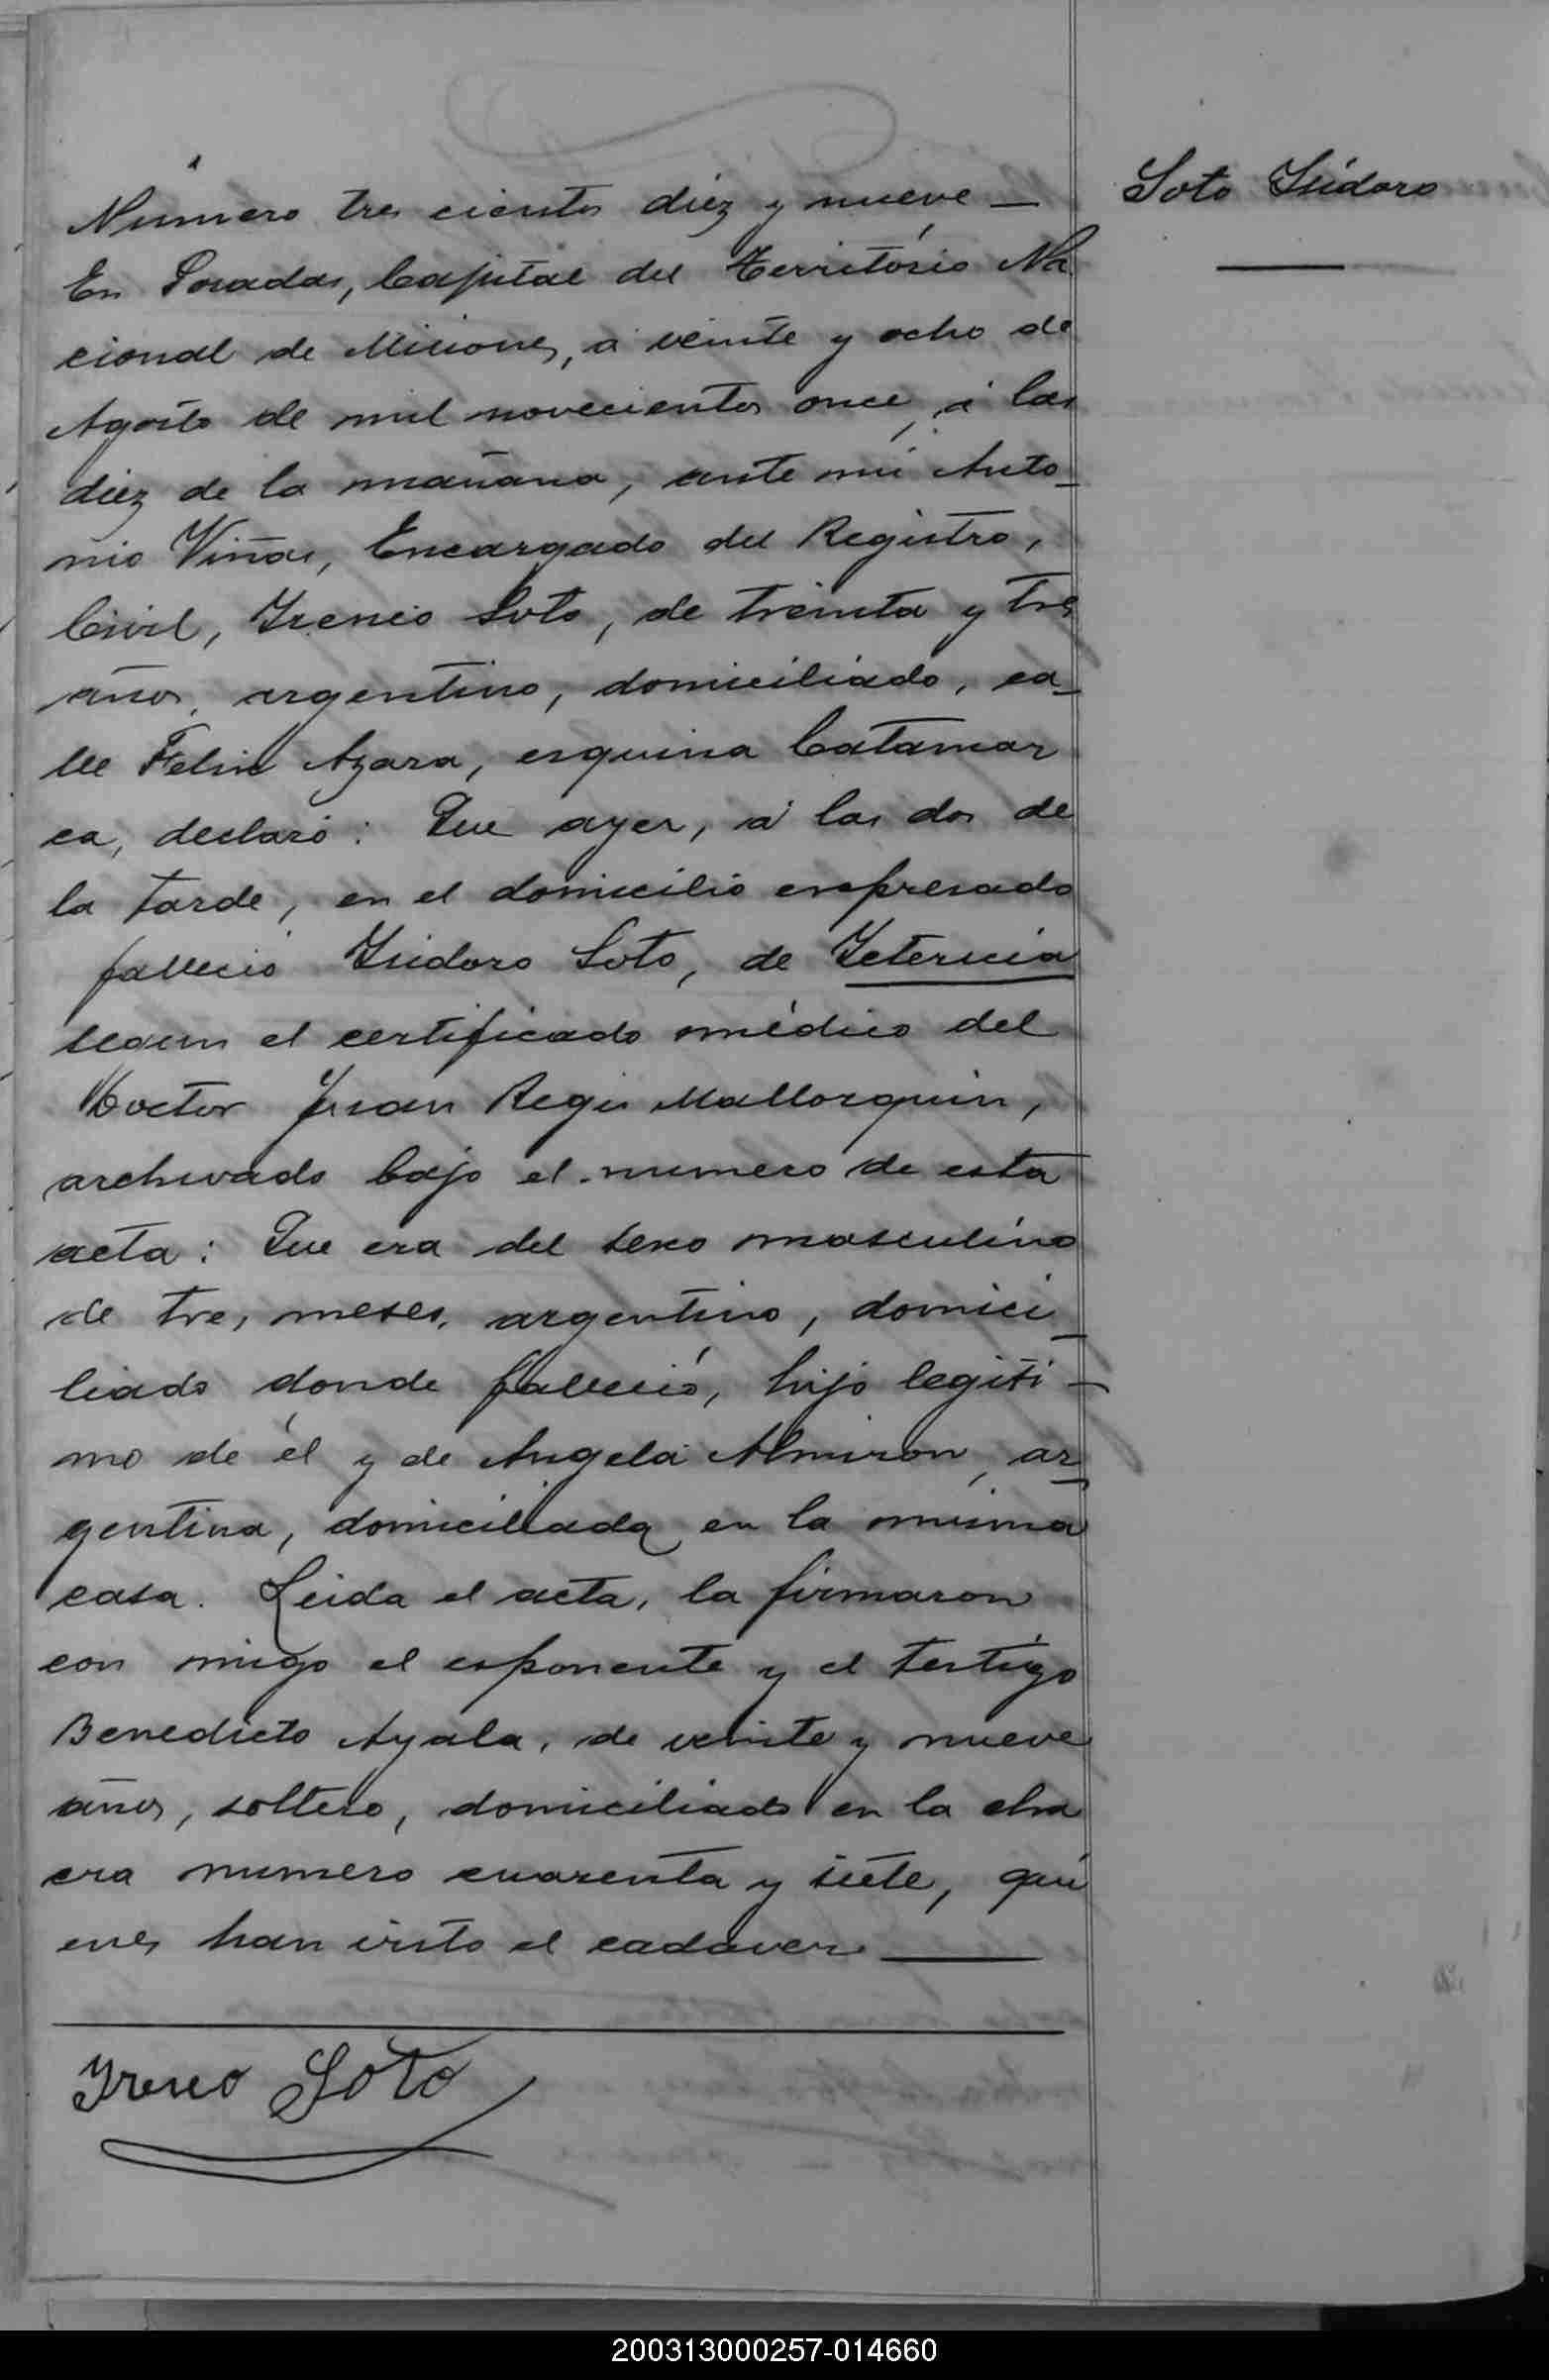 Número tres cientos diez y nueve —
Soto Isidoro
En Posadas, Capital del Territorio Na
cional de Misiones, á veinte y ocho de
Agosto de mil novecientos once, á las
diez de la mañana, ante mi Anto-
nio Viñas, Encargado del Registro,
Civil, Ireneo Soto, de treinta y tres
años, argentino, domiciliado, ca-
lle Felix Azara, esquina Catamar
ca, declaró: Que ayer, á las dos de
la tarde, en el domicilio expresado
falleció Isidoro Soto, de Ictericia
segun el certificado médico del
Doctor Juan Regis Mallorquin,
archivado bajo el numero de esta
acta: Que era del sexo masculino
de tres meses, argentino, domici-
liado donde falleció, hijo legiti-
mo de él y de Angela Almiron, ar-
gentina, domiciliada en la misma
casa. Leida el acta, la firmaron
con migo el esponente y el testigo
Benedicto Ayala, de veinte y nueve
años, soltero, domiciliado en la cha
cra numero cuarenta y siete, qui
enes han visto el cadaver —
Ireneo Soto
200313000257-014660